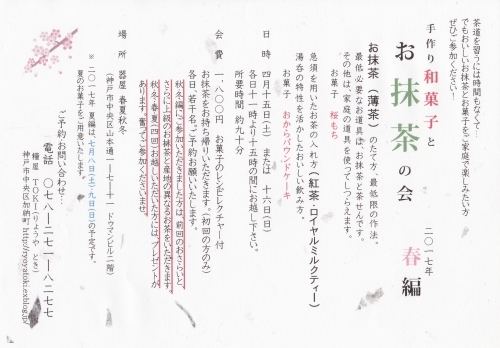 茶道を習うには時間もなくて…
でもおいしいお抹茶とお菓子をご家庭で楽しみたい方
ぜひご参加ください！
手作り和菓子と
お抹茶の会
二〇一七年
春編
お抹茶（薄茶）のたて方、最低限の作法。
最低必要なお道具は、お抹茶と茶せんです。
その他は、家庭の道具を使ってしつらえます。
お菓子　桜もち
急須を用いたお茶の入れ方（紅茶・ロイヤルミルクティー）
湯呑の特性を活かしたおいしい飲み方。
お菓子　おからパウンドケーキ
日　時　四月十五日(土)　または　十六日(日)
各日十一時より十五時の間にお越し下さい。
所要時間　約九十分
会　費　一、八〇〇円　お菓子のレシピレクチャー付
お抹茶をお持ち帰りいただきます。（初回の方のみ）
各日　若干名。ご予約お願いいたします。
秋冬編にご参加いただきました方は、前回のおさらいと、
さらに上級のお抹茶と産地の異なるお茶をいただきます。
秋・冬・春・夏(四回)お越しいただいた方には、プレゼントが
あります。奮ってご参加くださいませ。
場　所　器屋　春夏秋冬
（神戸市中央区山本通一-七-十一　ドウマンビル二階）
※　二〇一七年　夏編は、七月八日(土)、九日(日)の予定です。
夏のお菓子をご用意いたします。
ご予約お問い合わせ…
電話　〇七八-二七一-八二七七
糧屋　TOKI(りょうや　とき)
神戸市中央区加納町　http://ryoyatoki.exblog.jp/